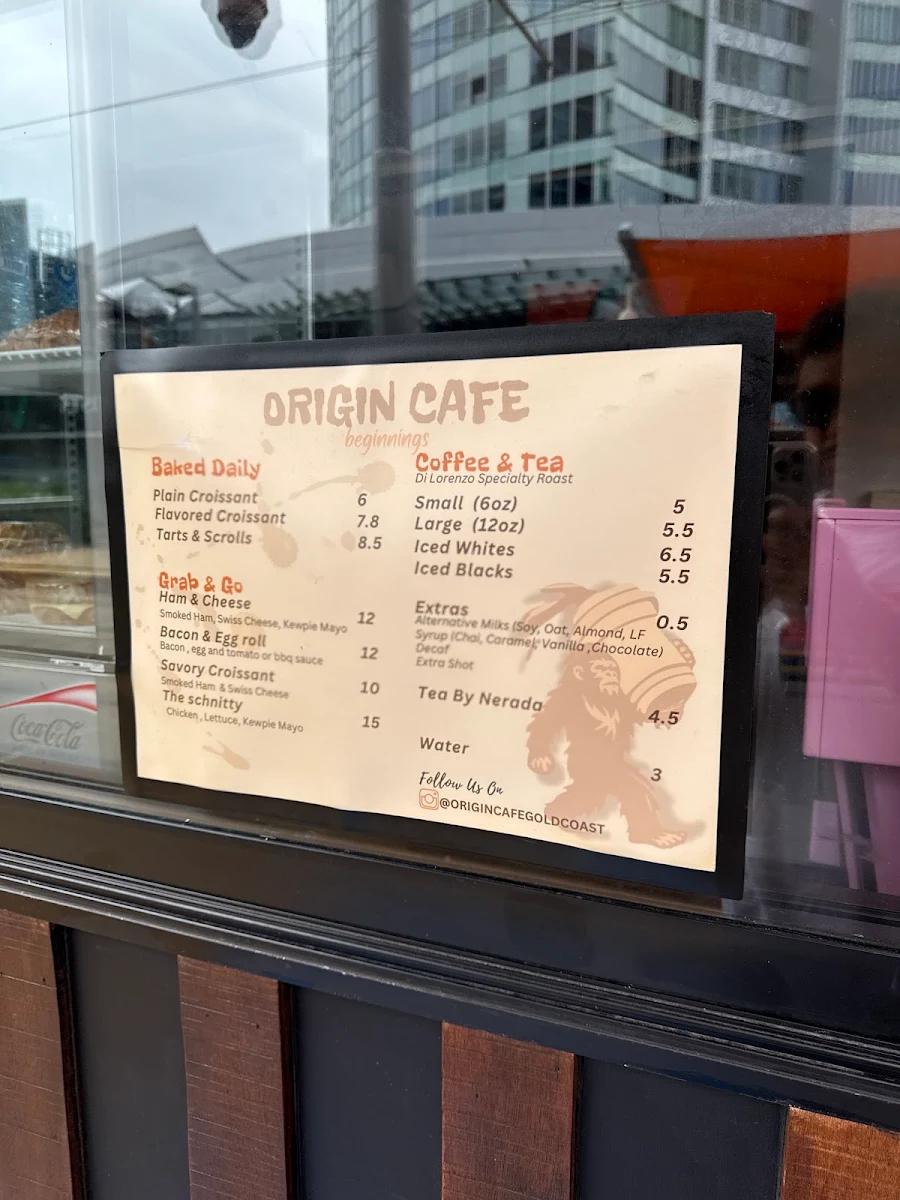 ORIGIN CAFE
beginnings
Baked Daily
Plain Croissant 6
Flavored Croissant 7.8
Tarts & Scrolls 8.5
Grab & Go
Ham & Cheese
Smoked Ham, Swiss Cheese, Kewpie Mayo 12
Bacon & Egg roll
Bacon , egg and tomato or bbq sauce 12
Savory Croissant
Smoked Ham & Swiss Cheese 10
The schnitty
Chicken , Lettuce, Kewpie Mayo 15
Coffee & Tea
Di Lorenzo Specialty Roast
Small (6oz) 5
Large (12oz) 5.5
Iced Whites 6.5
Iced Blacks 5.5
Extras 0.5
Alternative Milks (Soy, Oat, Almond, LF
Syrup (Chai, Caramel, Vanilla ,Chocolate)
Decaf
Extra Shot
Tea By Nerada 4.5
Water 3
Follow Us On
@ORIGINCAFEGOLDCOAST
Coca-Cola